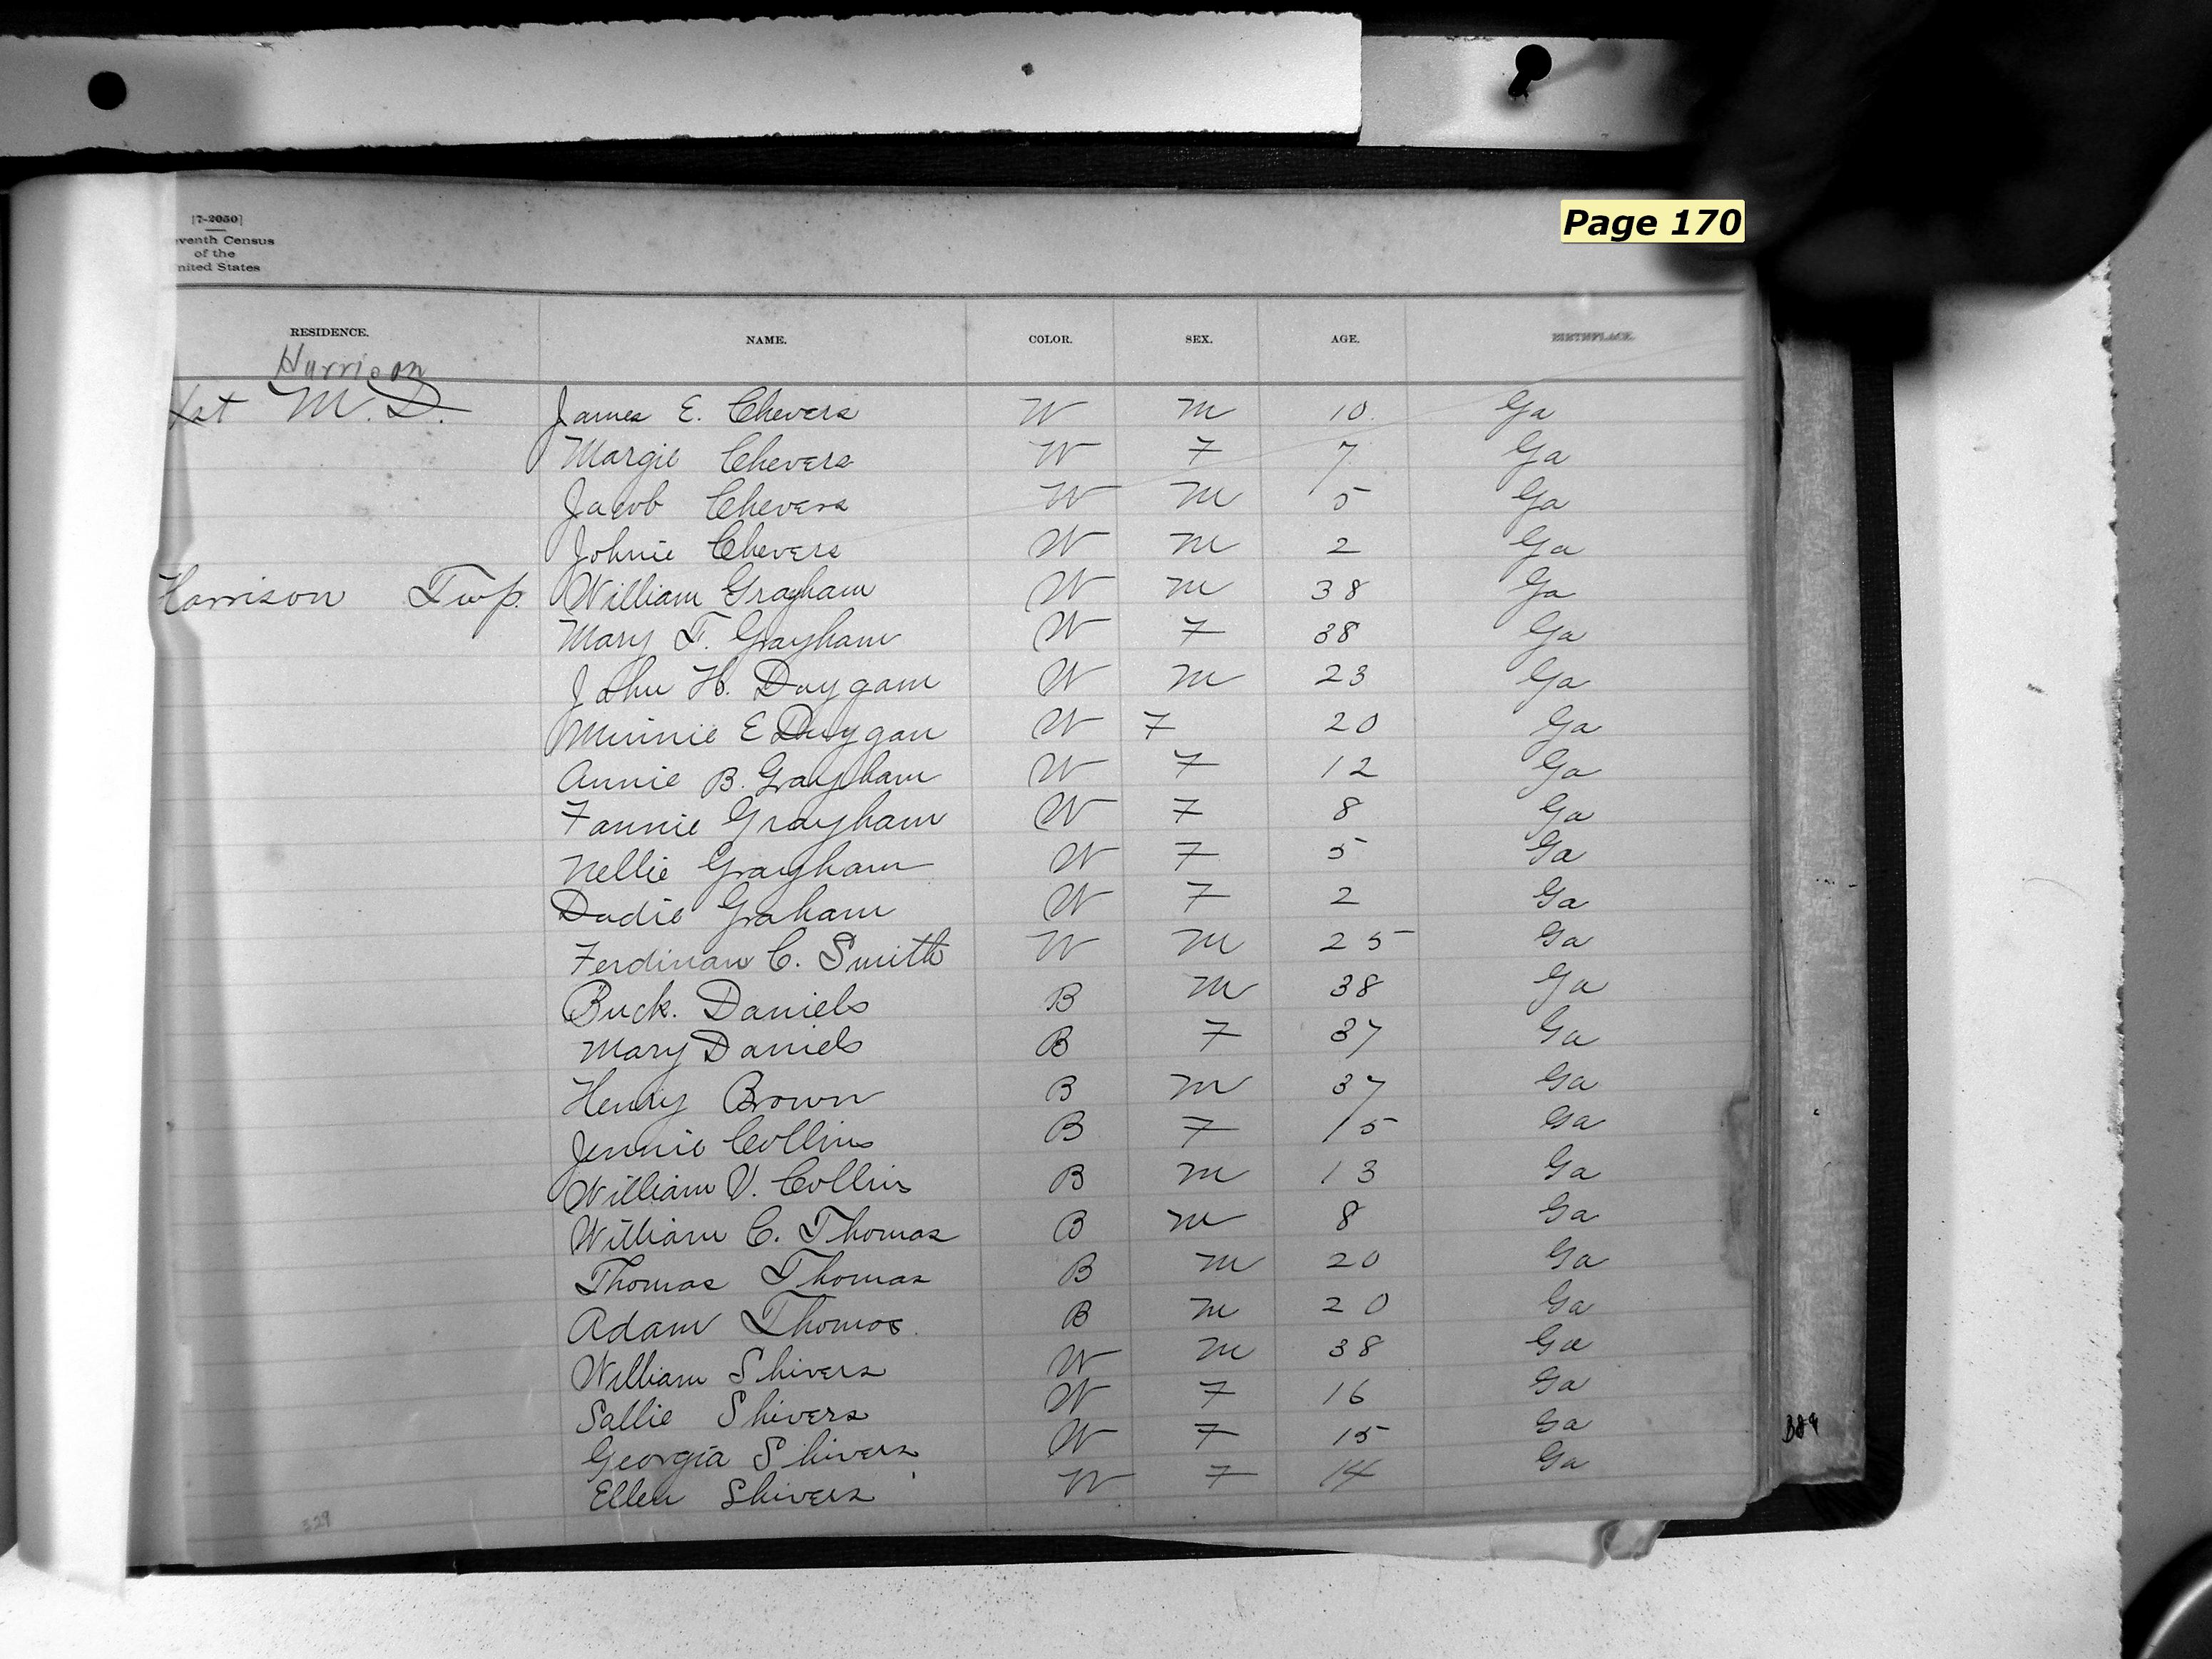 Page 170
[7-2050]
eventh Census
of the
nited States
RESIDENCE. NAME. COLOR. SEX. AGE. BIRTHPLACE.
Harrison
1st M. D. James E. Chevers W M 10 Ga
Margie Chevers W F 7 Ga
Jacob Chevers W M 5 Ga
Johnie Chevers W M 2 Ga
Harrison Twp. William Grayham W M 38 Ga
Mary F. Grayham W F 38 Ga
John H. Duygam W M 23 Ga
Minnie E Duygan W F 20 Ga
Annie B. Grayham W F 12 Ga
Fannie Grayham W F 8 Ga
Nellie Grayham W F 5 Ga
Dudie Graham W F 2 Ga
Ferdinan C. Smith W M 25 Ga
Buck. Daniels B M 38 Ga
Mary Daniels B F 37 Ga
Henry Brown B M 37 Ga
Jennie Collins B F 15 Ga
William V. Collins B M 13 Ga
William C. Thomas B M 8 Ga
Thomas Thomas B M 20 Ga
Adam Thomas B M 20 Ga
William Shivers W M 38 Ga
Sallie Shivers W F 16 Ga
Georgia Shivers W F 15 Ga
Ellen Shivers W F 14 Ga
329